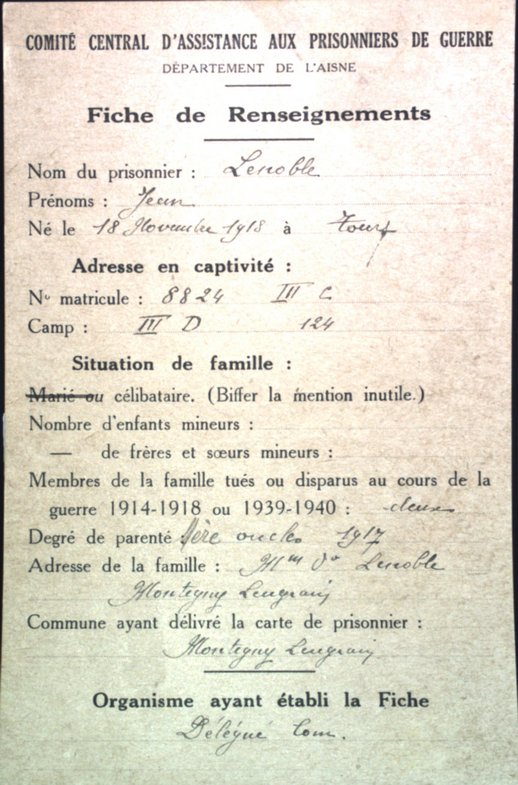 COMITÉ CENTRAL D'ASSISTANCE AUX PRISONNIERS DE GUERRE
DÉPARTEMENT DE L'AISNE
Fiche de Renseignements
Nom du prisonnier : Lenoble
Prénoms : Jean
Né le 18 Novembre 1918 à Tours
Adresse en captivité :
No matricule : 8824 III C
Camp : III D 124
Situation de famille :
Marié ou célibataire. (Biffer la mention inutile.)
Nombre d'enfants mineurs :
— de frères et sœurs mineurs :
Membres de la famille tués ou disparus au cours de la
guerre 1914-1918 ou 1939-1940 : deux
Degré de parenté oncles 1917
Adresse de la famille : Mme Ve Lenoble
Montigny Lengrain
Commune ayant délivré la carte de prisonnier :
Montigny Lengrain
Organisme ayant établi la Fiche
Délégué Com.